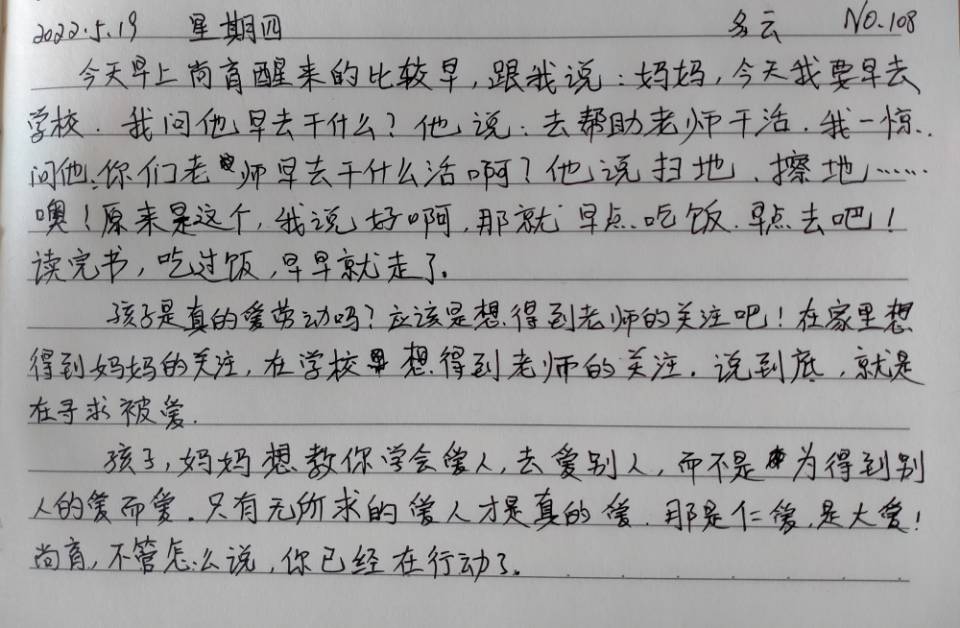 2022.5.19 星期四 多云 NO.108
今天早上尚育醒来的比较早，跟我说：妈妈，今天我要早去
学校．我问他早去干什么？他说：去帮助老师干活．我一惊．
问他：你们老师早去干什么活啊？他说扫地、擦地……
噢！原来是这个，我说好啊，那就早点吃饭．早点去吧！
读完书，吃过饭，早早就走了。
孩子是真的爱劳动吗？应该是想得到老师的关注吧！在家里想
得到妈妈的关注，在学校想得到老师的关注．说到底，就是
在寻求被爱．
孩子，妈妈想教你学会爱人，去爱别人，而不是为得到别
人的爱而爱．只有无所求的爱人才是真的爱．那是仁爱，是大爱！
尚育，不管怎么说，你已经在行动了。